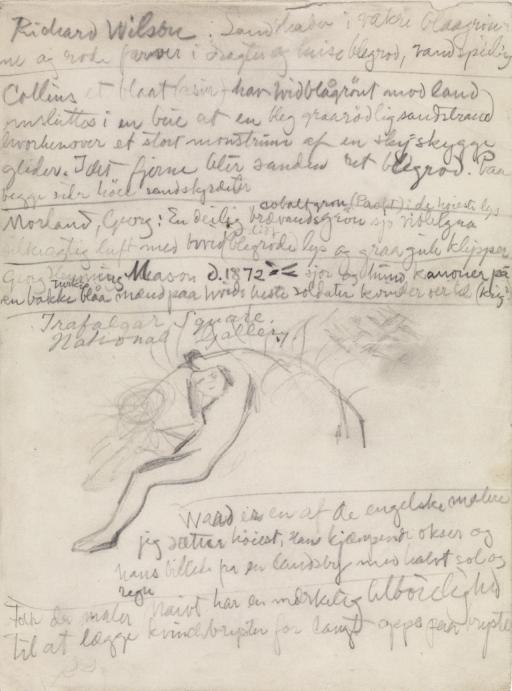 Richard Wilson. Sandbader i vakre blaagrøn
ne og røde farver i dragter og huise blegrød, vandspeiling
Collins et blaat lasur hav hvidblågrönt mod land
omsluttes i en bue at en bleg graarødlig sandstrand
hvorhenover et stort monstrum af en sky skygge
glider. I det fjerne blir sanden ret blegrød. Paa
begge sider höie sandskrænter
cobaltgrøn i de høieste lys
Morland, Georg: En deilig brævandsgrön sjø violetgraa
luft med hvid blegrøde lys og graa gule klipper
Georg Hemming Mason d. 1872 sjør og hund kanoner på
tyrk
en bakke blåa mænd paa hvide heste soldater kvinder over (krig)
Trafalgar Square.
National Gallery.
Ward er en af de engelske malere
jeg sætter høiest, Han kjæmpende okser og
hans billede på en landsby med halvt sol og
regn
Folk der maler naivt har en mærkelig tilbøielighed
til at lægge kvindebryster for langt oppe paa bryste